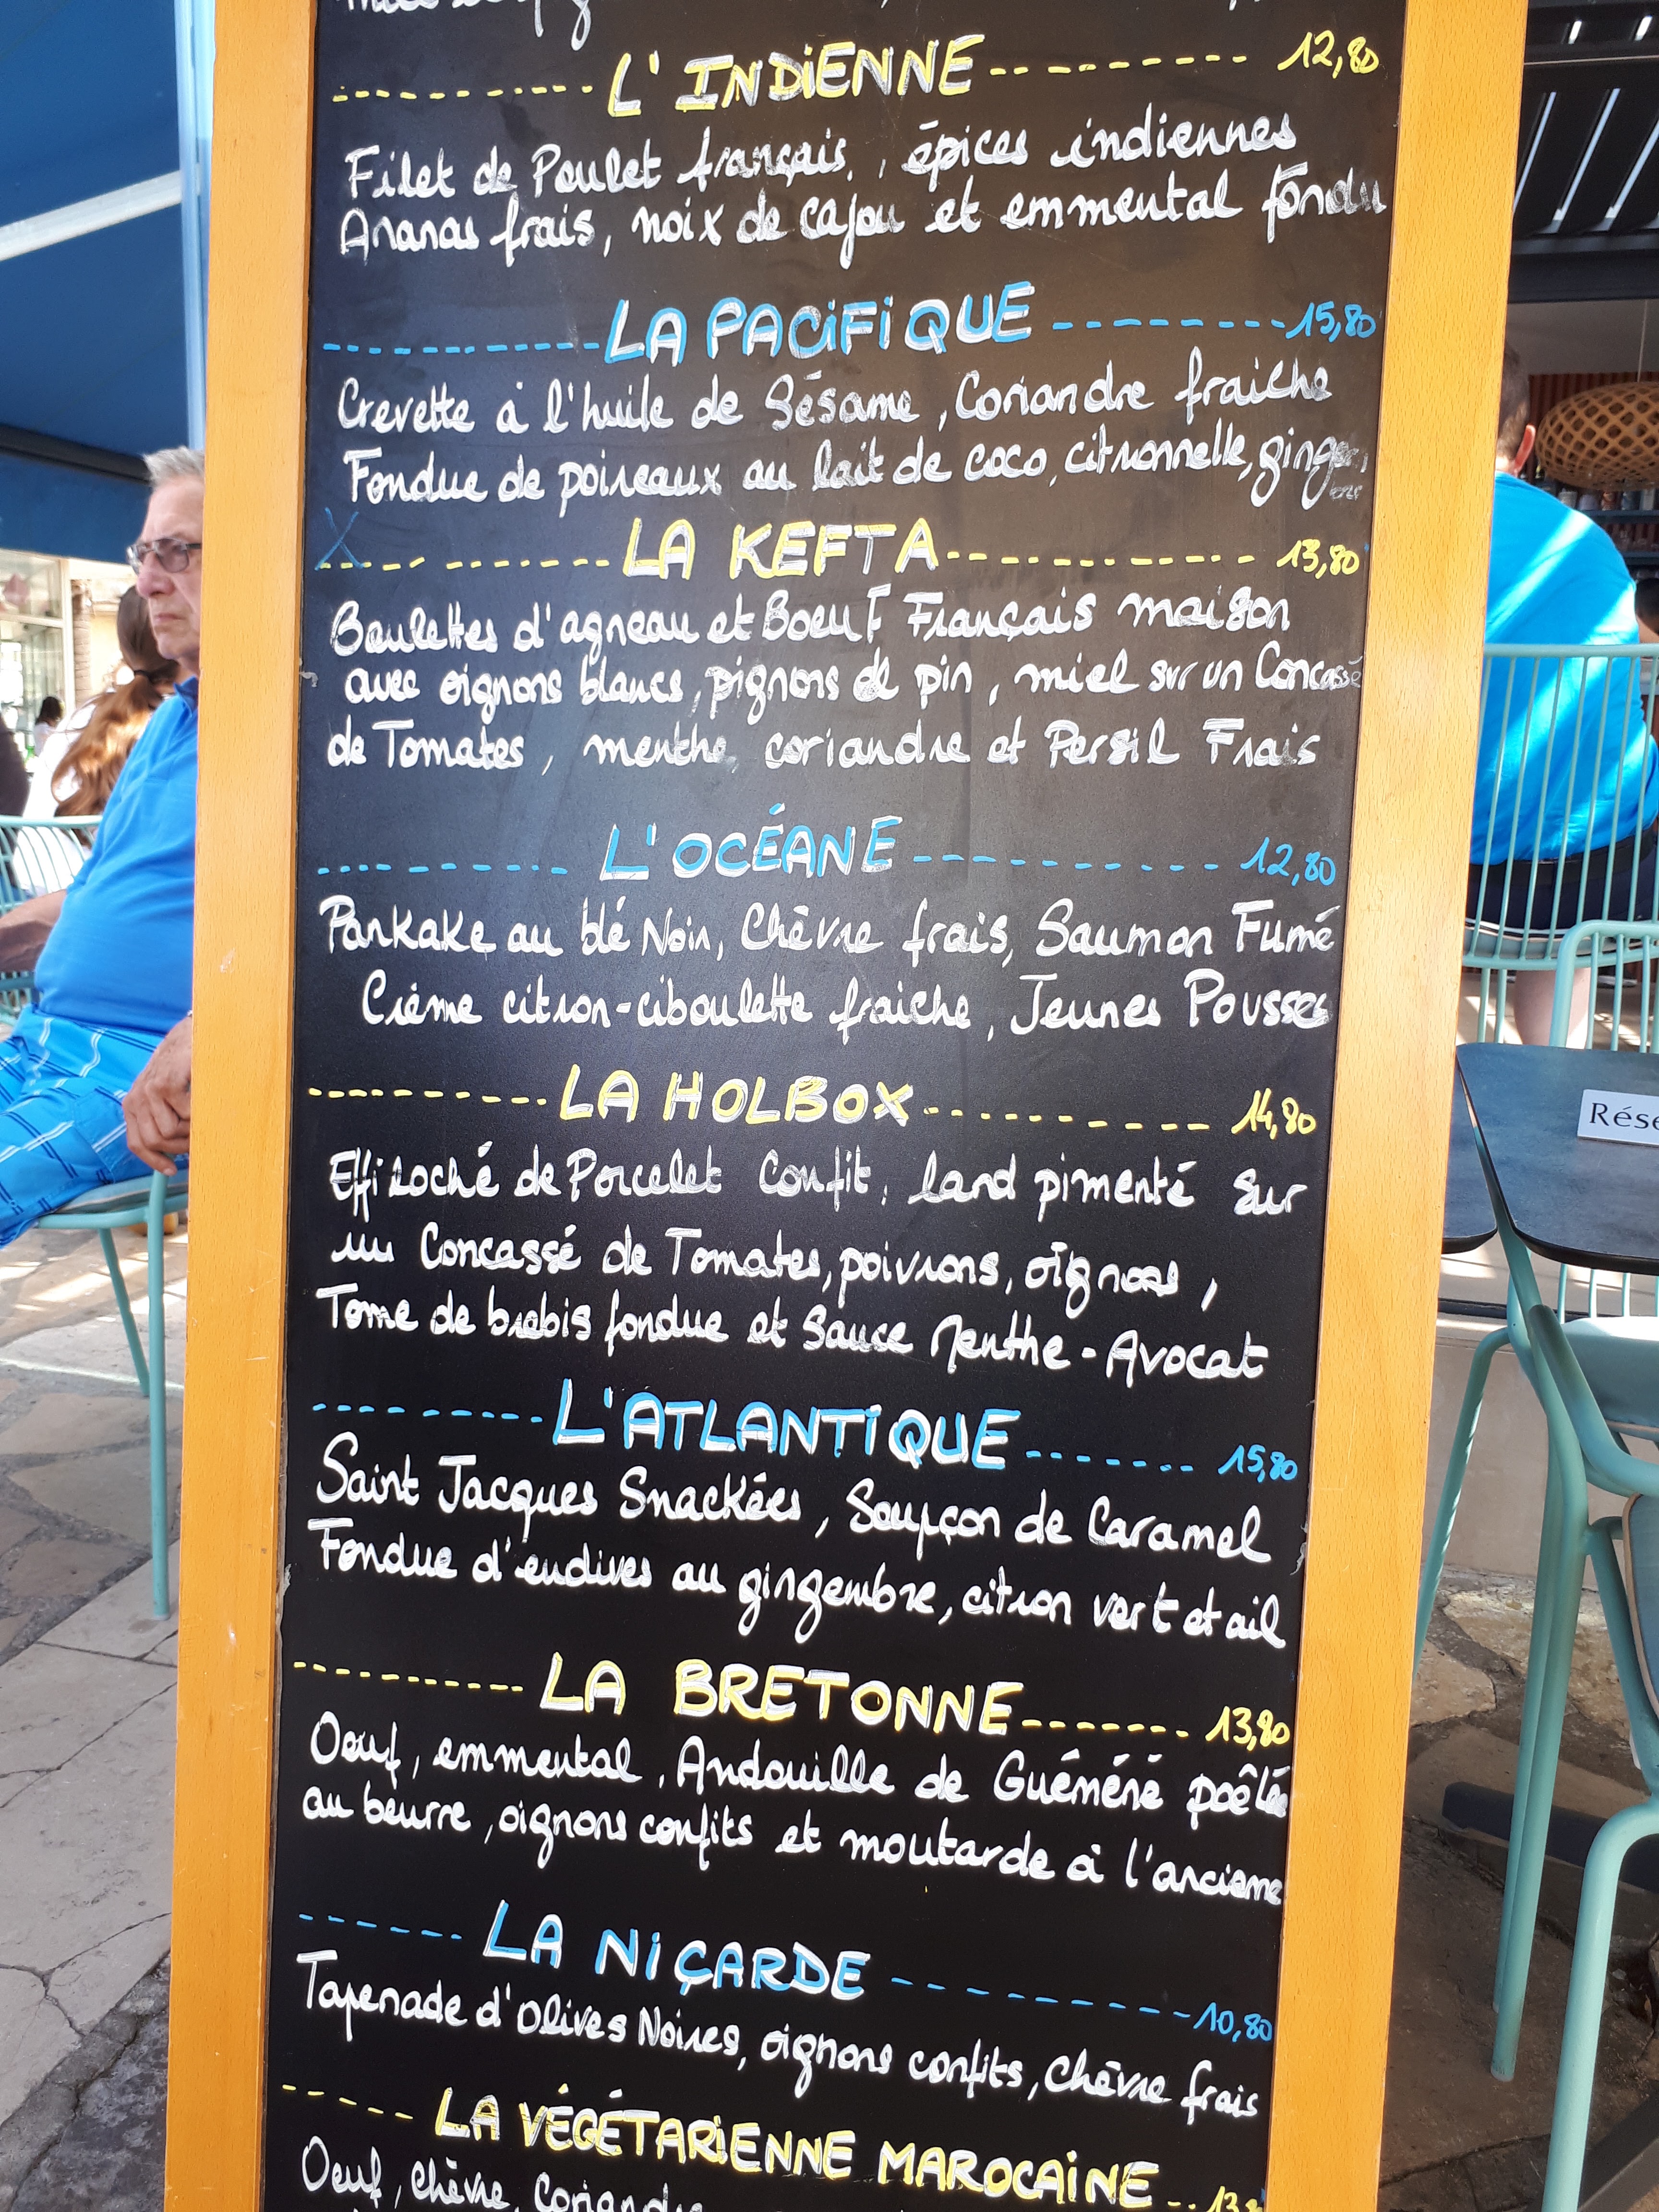 L'INDIENNE 12,80
Filet de Poulet français, épices indiennes
Ananas frais, noix de cajou et emmental fondu
LA PACIFIQUE 15,80
Crevette à l'huile de Sésame, Coriandre fraiche
Fondue de poireaux au lait de coco, citronnelle, gingembre
X LA KEFTA 13,80
Boulettes d'agneau et Boeuf Français maison
avec oignons blancs, pignons de pin, miel sur un Concassé
de Tomates, menthe, coriandre et Persil Frais
L'OCÉANE 12,80
Pankake au blé Noir, Chèvre frais, Saumon Fumé
Crème citron-ciboulette fraiche, Jeunes Pousses
LA HOLBOX 14,80
Effiloché de Porcelet Confit, lard pimenté Sur
un Concassé de Tomates, poivrons, oignons,
Tome de brebis fondue et Sauce Menthe-Avocat
L'ATLANTIQUE 15,80
Saint Jacques Snackées, Soupçon de Caramel
Fondue d'endives au gingembre, citron vert et ail
LA BRETONNE 13,80
Oeuf, emmental, Andouille de Guéméné poêlée
au beurre, oignons confits et moutarde à l'ancienne
LA NIÇARDE 10,80
Tapenade d'Olives Noires, oignons confits, Chèvre frais
LA VÉGÉTARIENNE MAROCAINE
Oeuf, Chèvre, Coriandre
Rése